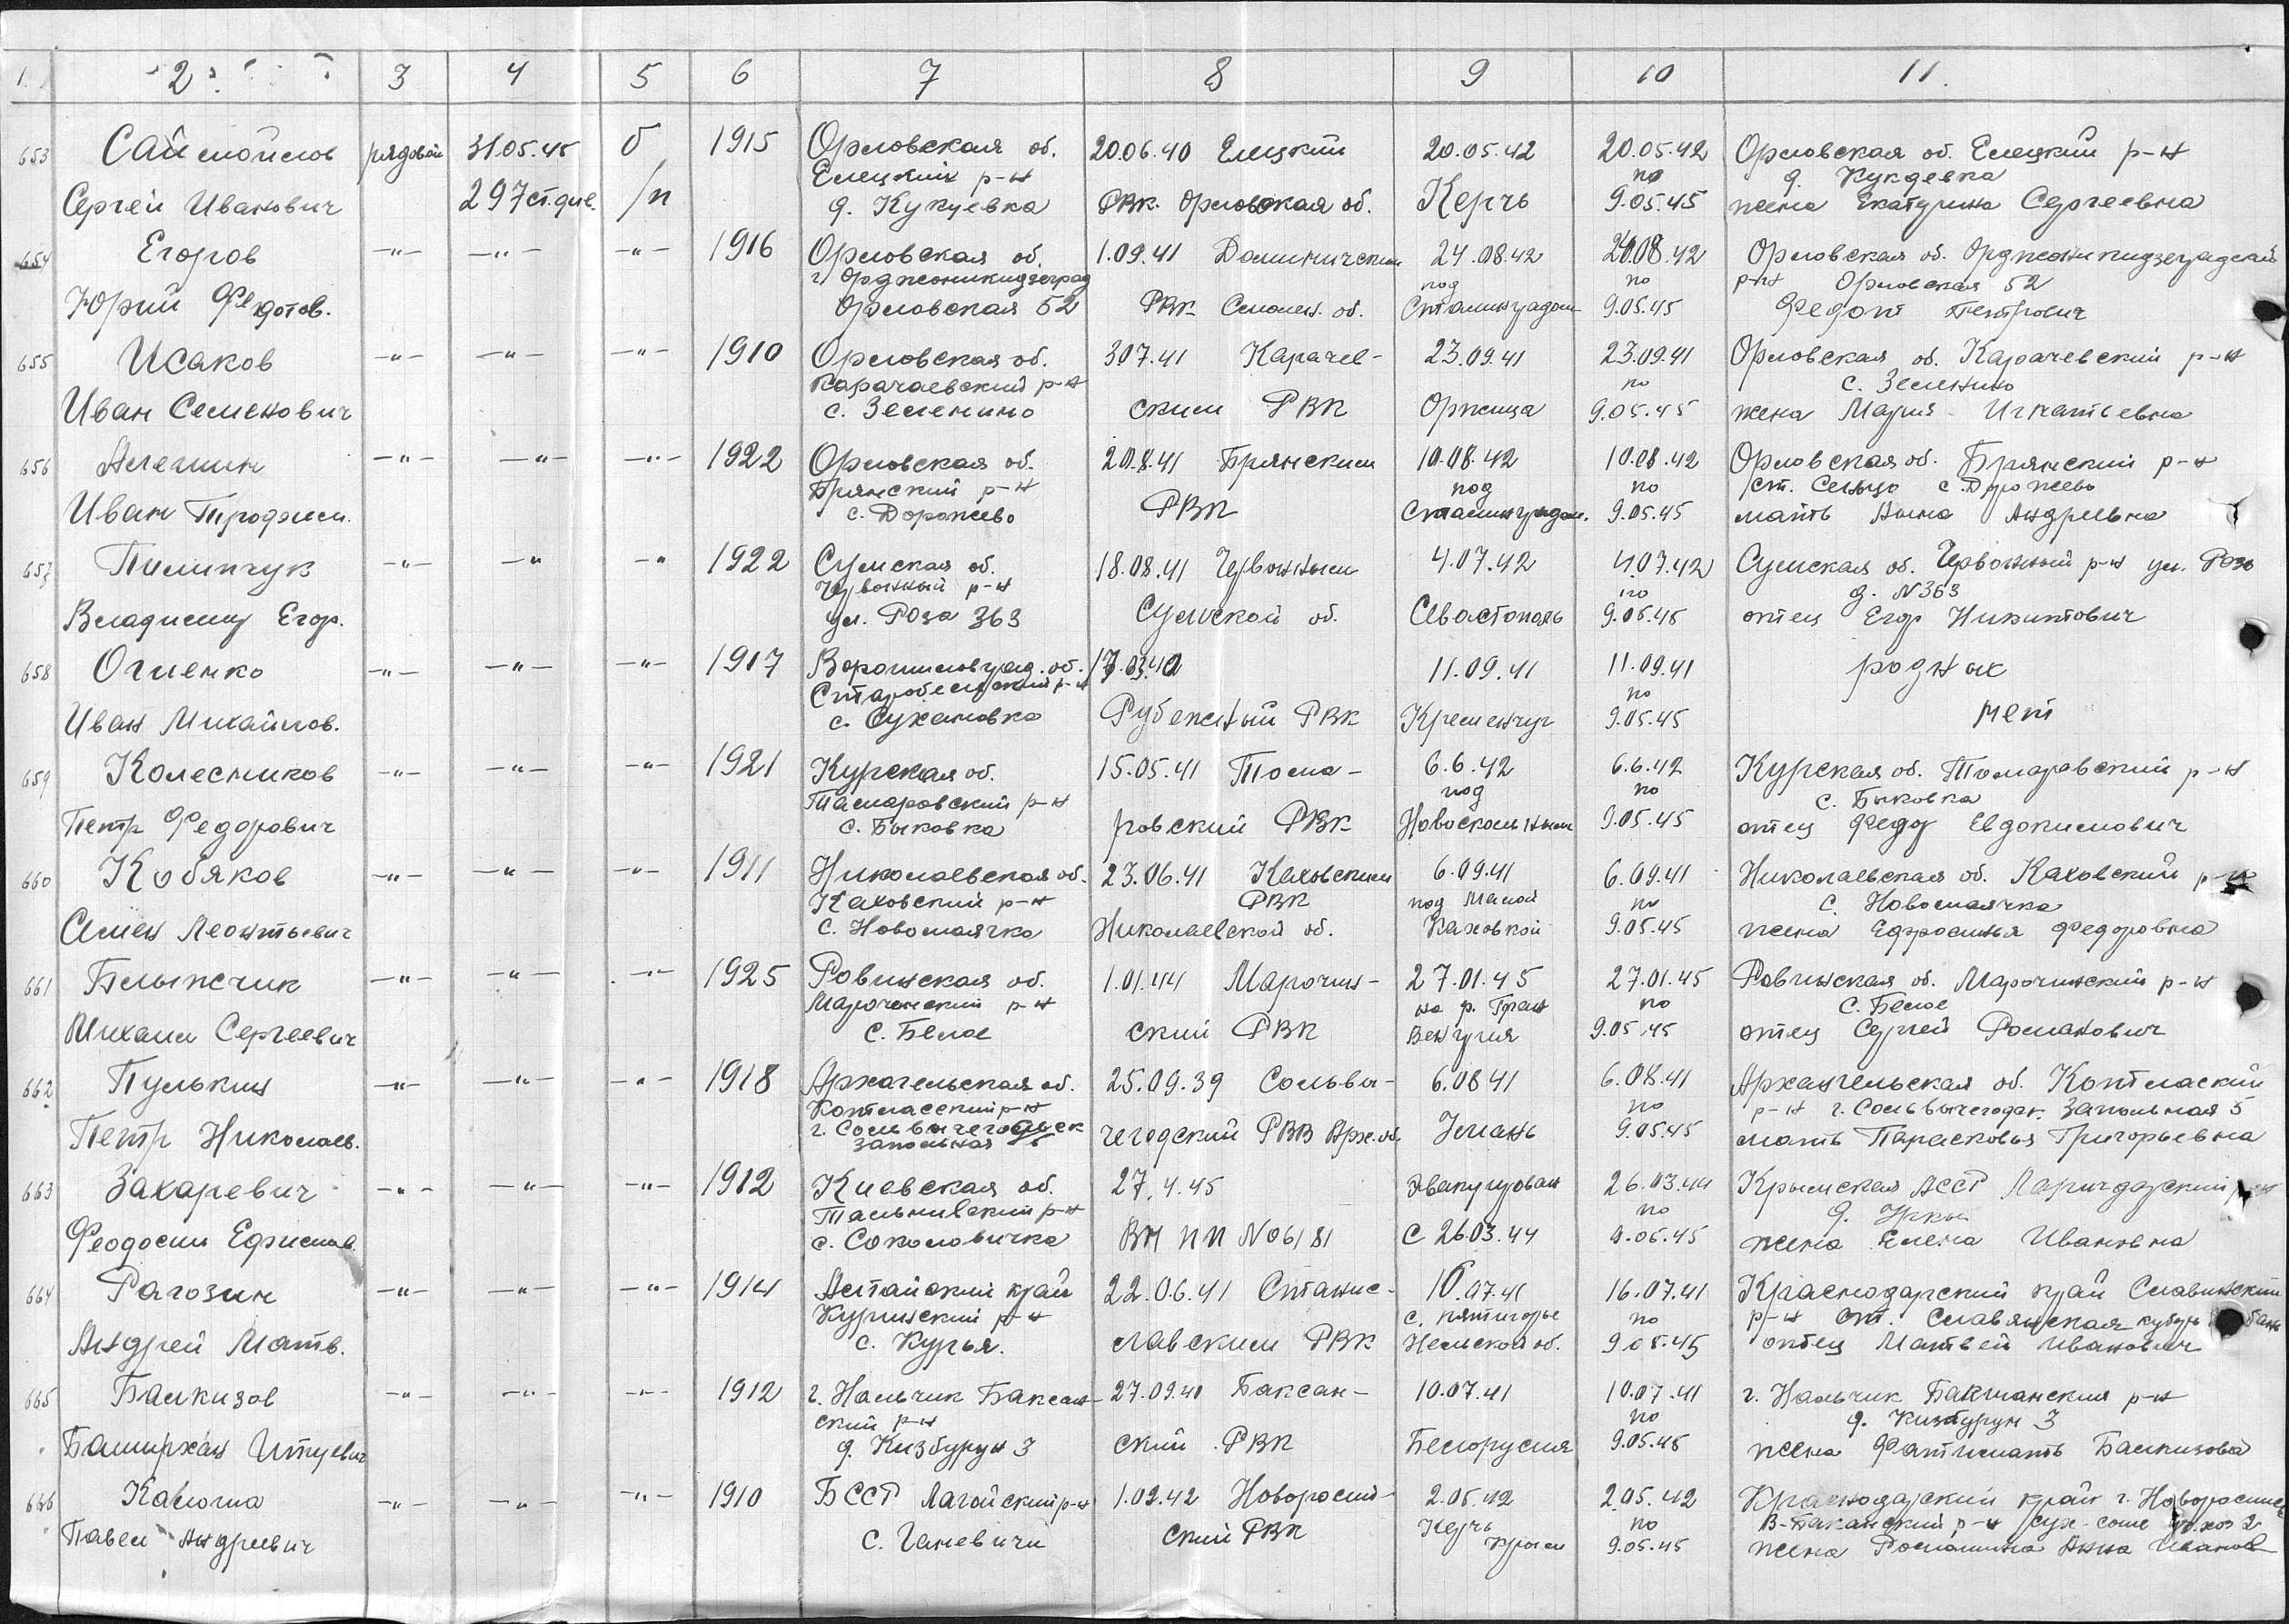 1. 2. 3 4 5 6 7 8 9 10 11.
653 Саймойлов рядовой 31.05.45 б 1915 Орловская об. 20.06.40 Елецкий 20.05.42 20.05.42 Орловская об. Елецкий р-н
Елецкий р-н по д. Кукуевка
Сергей Иванович 297 ст. див. /п д. Кукуевка РВК Орловская об. Керчь 9.05.45 жена Екатерина Сергеевна
654 Егоров -"- -"- -"- 1916 Орловская об. 1.09.41 24.08.42 24.08.42 Орловская об. Орджоникидзеградский
г. Орджоникидзеград под по р-н Орловская 52
Юрий Федотов. Орловская 52 РВК Смолен. об. Сталинградом 9.05.45 Федот Петрович
655 Исаков -"- -"- -"- 1910 Орловская об. 3.07.41 Карачев- 23.09.41 23.09.41 Орловская об. Карачевский р-н
Карачаевский р-н по с. Зеленино
Иван Семенович с. Зеленино ским РВК Оржица 9.05.45 жена Мария Игнатьевна
656 Алешин -"- -"- -"- 1922 Орловская об. 20.8.41 Брянским 10.08.42 10.08.42 Орловская об. Брянский р-н
Брянский р-н под по ст. Сельцо с. Дорожево
Иван Трофим. с. Дорожево РВК Сталинградом. 9.05.45 мать Анна Андреевна
657 Пилипчук -"- -" -" 1922 Сумская об. 18.08.41 Червонным 4.07.42 4.07.42 Сумская об. Червонный р-н ул. Роза
Червонный р-н по д. N 363
Владимир Егор. ул. Роза 363 Сумской об. Севастополь 9.05.45 отец Егор Никитович
658 Огиенко -"- -"- -"- 1917 Ворошиловград. об. 17.03.40 11.09.41 11.09.41 родных
Старобельский р-н по
Иван Михайлов. с. Сухановка Рубежный РВК Кременчуг 9.05.45 нет
659 Колесников -"- -"- -"- 1921 Курская об. 15.05.41 Тома- 6.6.42 6.6.42 Курская об. Томаровский р-н
Тамаровский р-н под по с. Быковка
Петр Федорович с. Быковка ровский РВК 9.05.45 отец Федор Евдокимович
660 Кобяков -"- -"- -"- 1911 Николаевская об. 23.06.41 Каховским 6.09.41 6.09.41 Николаевская об. Каховский р-н
Каховский р-н РВК под Малой по с. Новомаячка
Семен Леонтьевич с. Новомаячка Николаевской об. Каховкой 9.05.45 жена Ефросинья Федоровна
661 Бельпсчик -"- -"- -"- 1925 Ровинская об. 1.01.44 Марочин- 27.01.45 27.01.45 Ровинская об. Марочинский р-н
Марочинский р-н на р. Гран по с. Белое
Михаил Сергеевич с. Белое ский РВК Венгрия 9.05.45 отец Сергей Романович
662 Пулькин -"- -"- -"- 1918 Архагельская об. 25.09.39 Сольвы- 6.08.41 6.08.41 Архангельская об. Котлаский
Котласский р-н по р-н г. Сольвычегодск. Запольная 5
г. Сольвычегодск
Петр Николаев. Запольная 5 чегодский РВВ Арх. об. Умань 9.05.45 мать Парасковья Григорьевна
663 Захаревич -"- -"- -"- 1912 Киевская об. 27.4.45 эвакуирован 26.03.44 Крымская АССР р-н
Тальнивский р-н по д.
Феодосий Ефимов с. Соколовичка ВМ ПП N 06181 с 26.03.44 9.05.45 жена Елена Ивановна
664 Рагозин -"- -"- -"- 1914 Алтайский край 22.06.41 Станис- 16.07.41 16.07.41 Краснодарский край Славинский
Курьинский р-н с. Пятигорье по р-н ст. Славянская
Андрей Матв. с. Курья. лавским РВК 9.05.45 отец Матвей Иванович
665 Балкизов -"- -"- -"- 1912 г. Нальчик Баксан- 27.09.40 Баксан- 10.07.41 10.07.41 г. Нальчик Бакшанския р-н
ский р-н по д. Кизбурун 3
Баширхан д. Кизбурун 3 ский РВК Белорусия 9.05.45 жена Фатимать Балкизова
666 Кавлюга -"- -"- -"- 1910 БССР Лагойский р-н 1.02.42 Новоросий- 2.05.42 2.05.42 Краснодарский край г. Новоросийск
Керчь по В-Баканский р-н
Павел Андреевич с. Ганевичи ский РВК Крым 9.05.45 жена Анна Иванов